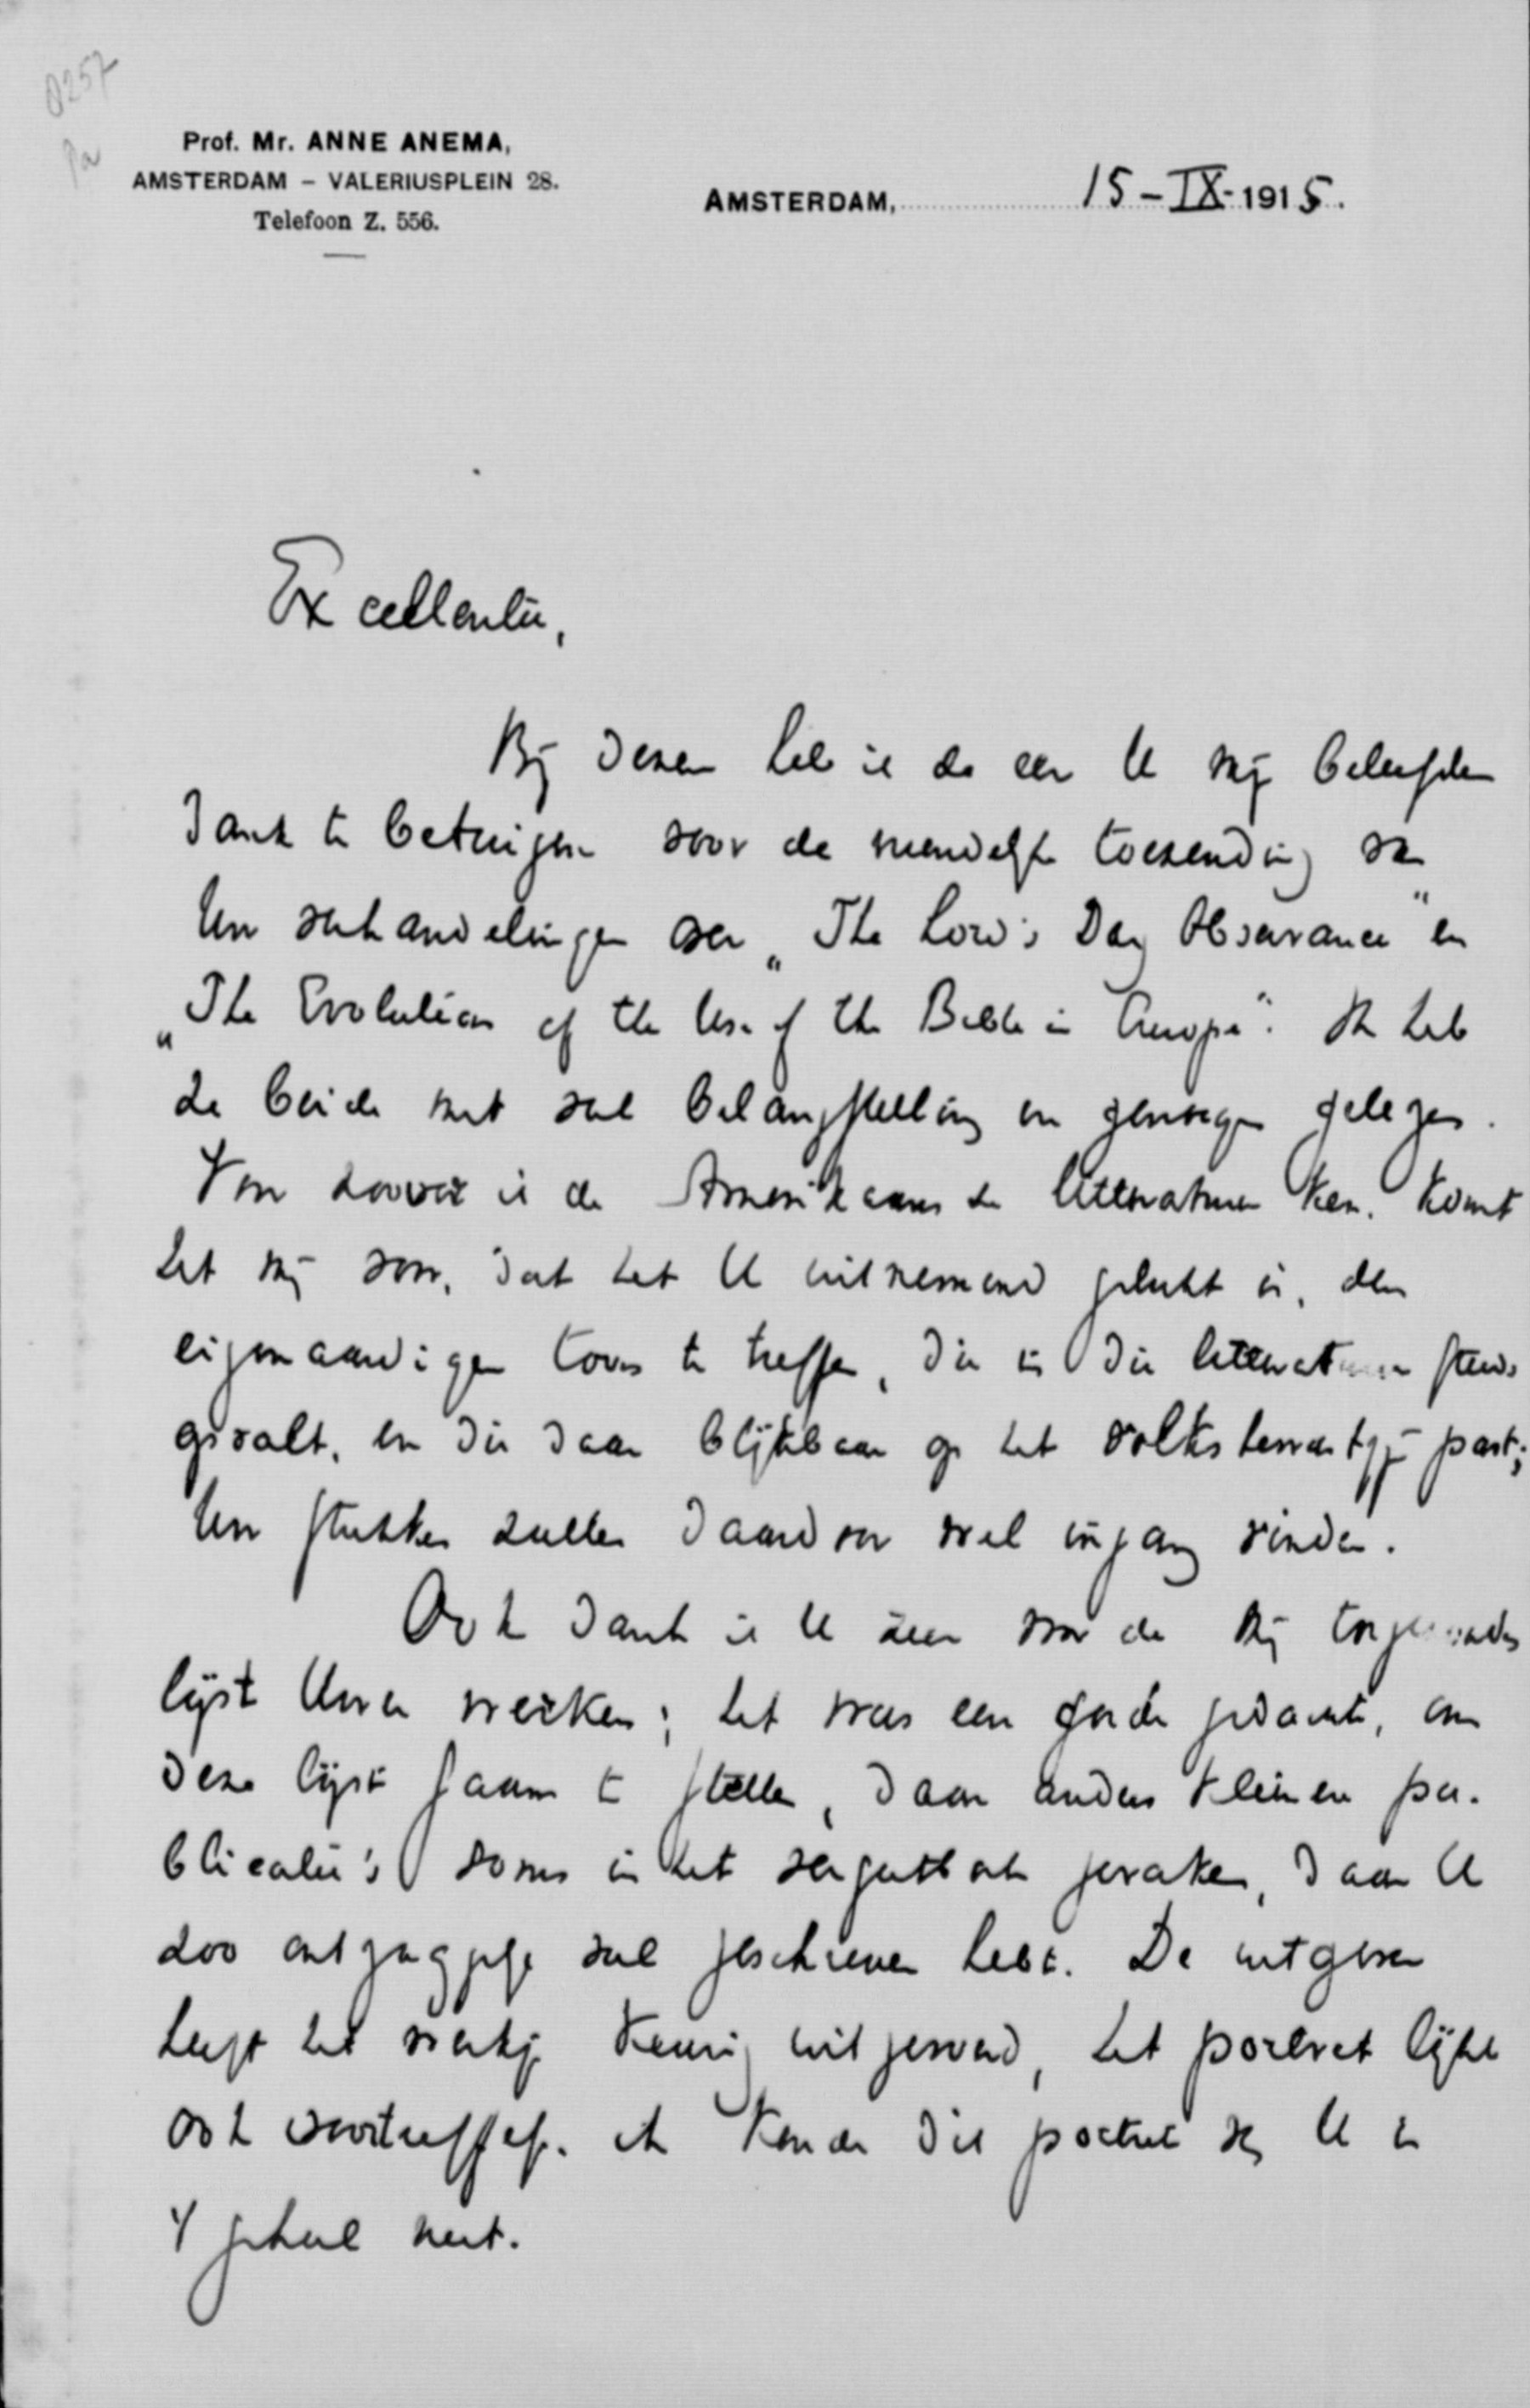 8257
Pa
Prof. Mr. ANNE ANEMA,
AMSTERDAM – VALERIUSPLEIN 28.
Telefoon Z. 556.
AMSTERDAM, 15-IX-1915.
Excellentie,
Bij dezen heb ik de eer U mijn beleefden
dank te betuigen voor de vriendelijke toezending van
Uw verhandelingen over „The Lord's Day Observance" en
„The Evolution of the Use of the Bible in Europe". Ik heb
ze beide met veel belangstelling en genoegen gelezen.
Voor zoover ik de Amerikaansche litteratuur ken, komt
het mij voor, dat het U uitnemend gelukt is, den
eigenaardigen toon te treffen, die in die litteratuur steeds
gevolt, en die daar blijkbaar op het volksbewustzijn past;
Uw stukken zullen daardoor wel ingang vinden.
Ook dank ik U zeer voor de mij toegezonden
lijst Uwer werken; het was een goede gedachte, om
deze lijst saam te stellen, daar anders kleinere pu-
blicatie's soms in het vergeetboek geraken, daar U
zoo ontzaggelijk veel geschreven hebt. De uitgever
heeft het werkje keurig uitgevoerd, het portret lijkt
ook voortreffelijk. ik kende dit portret van U in
't geheel niet.